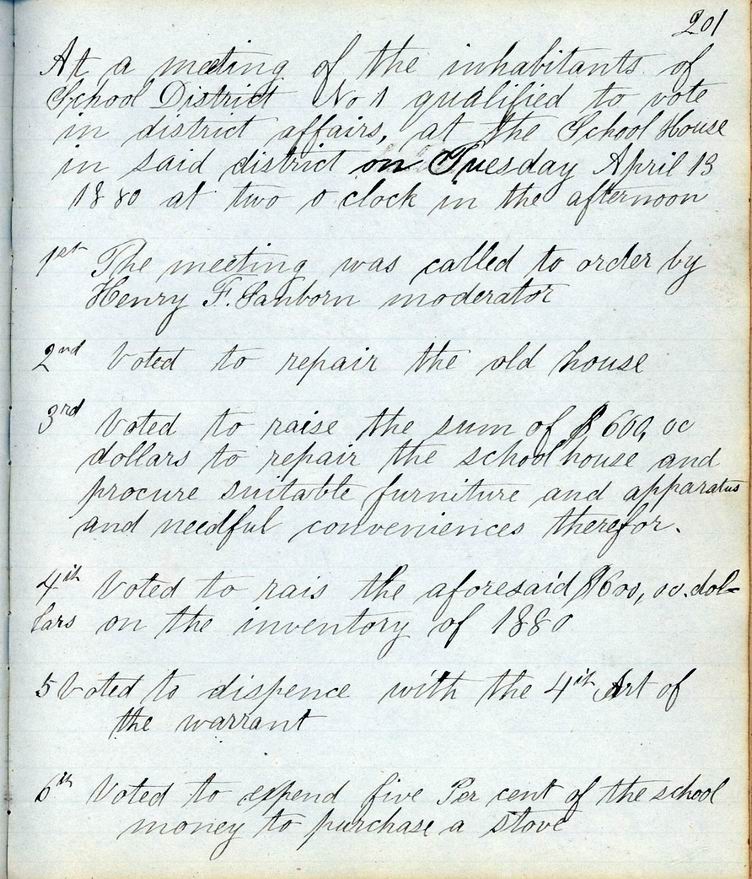 201
At a meeting of the inhabitants of
School District No 1 qualified to vote
in district affairs, at the School House
in said district on Tuesday April 13
1880 at two o clock in the afternoon
1st The meeting was called to order by
Henry F. Sanborn moderator
2nd Voted to repair the old house
3rd Voted to raise the sum of $600,00
dollars to repair the school house and
procure suitable furniture and apparatus
and needful conveniences therefor.
4th Voted to rais the aforesaid $600,00 dol-
lars on the inventory of 1880
5 Voted to dispence with the 4th Art of
the warrant
6th Voted to expend five Per cent of the school
money to purchase a stove